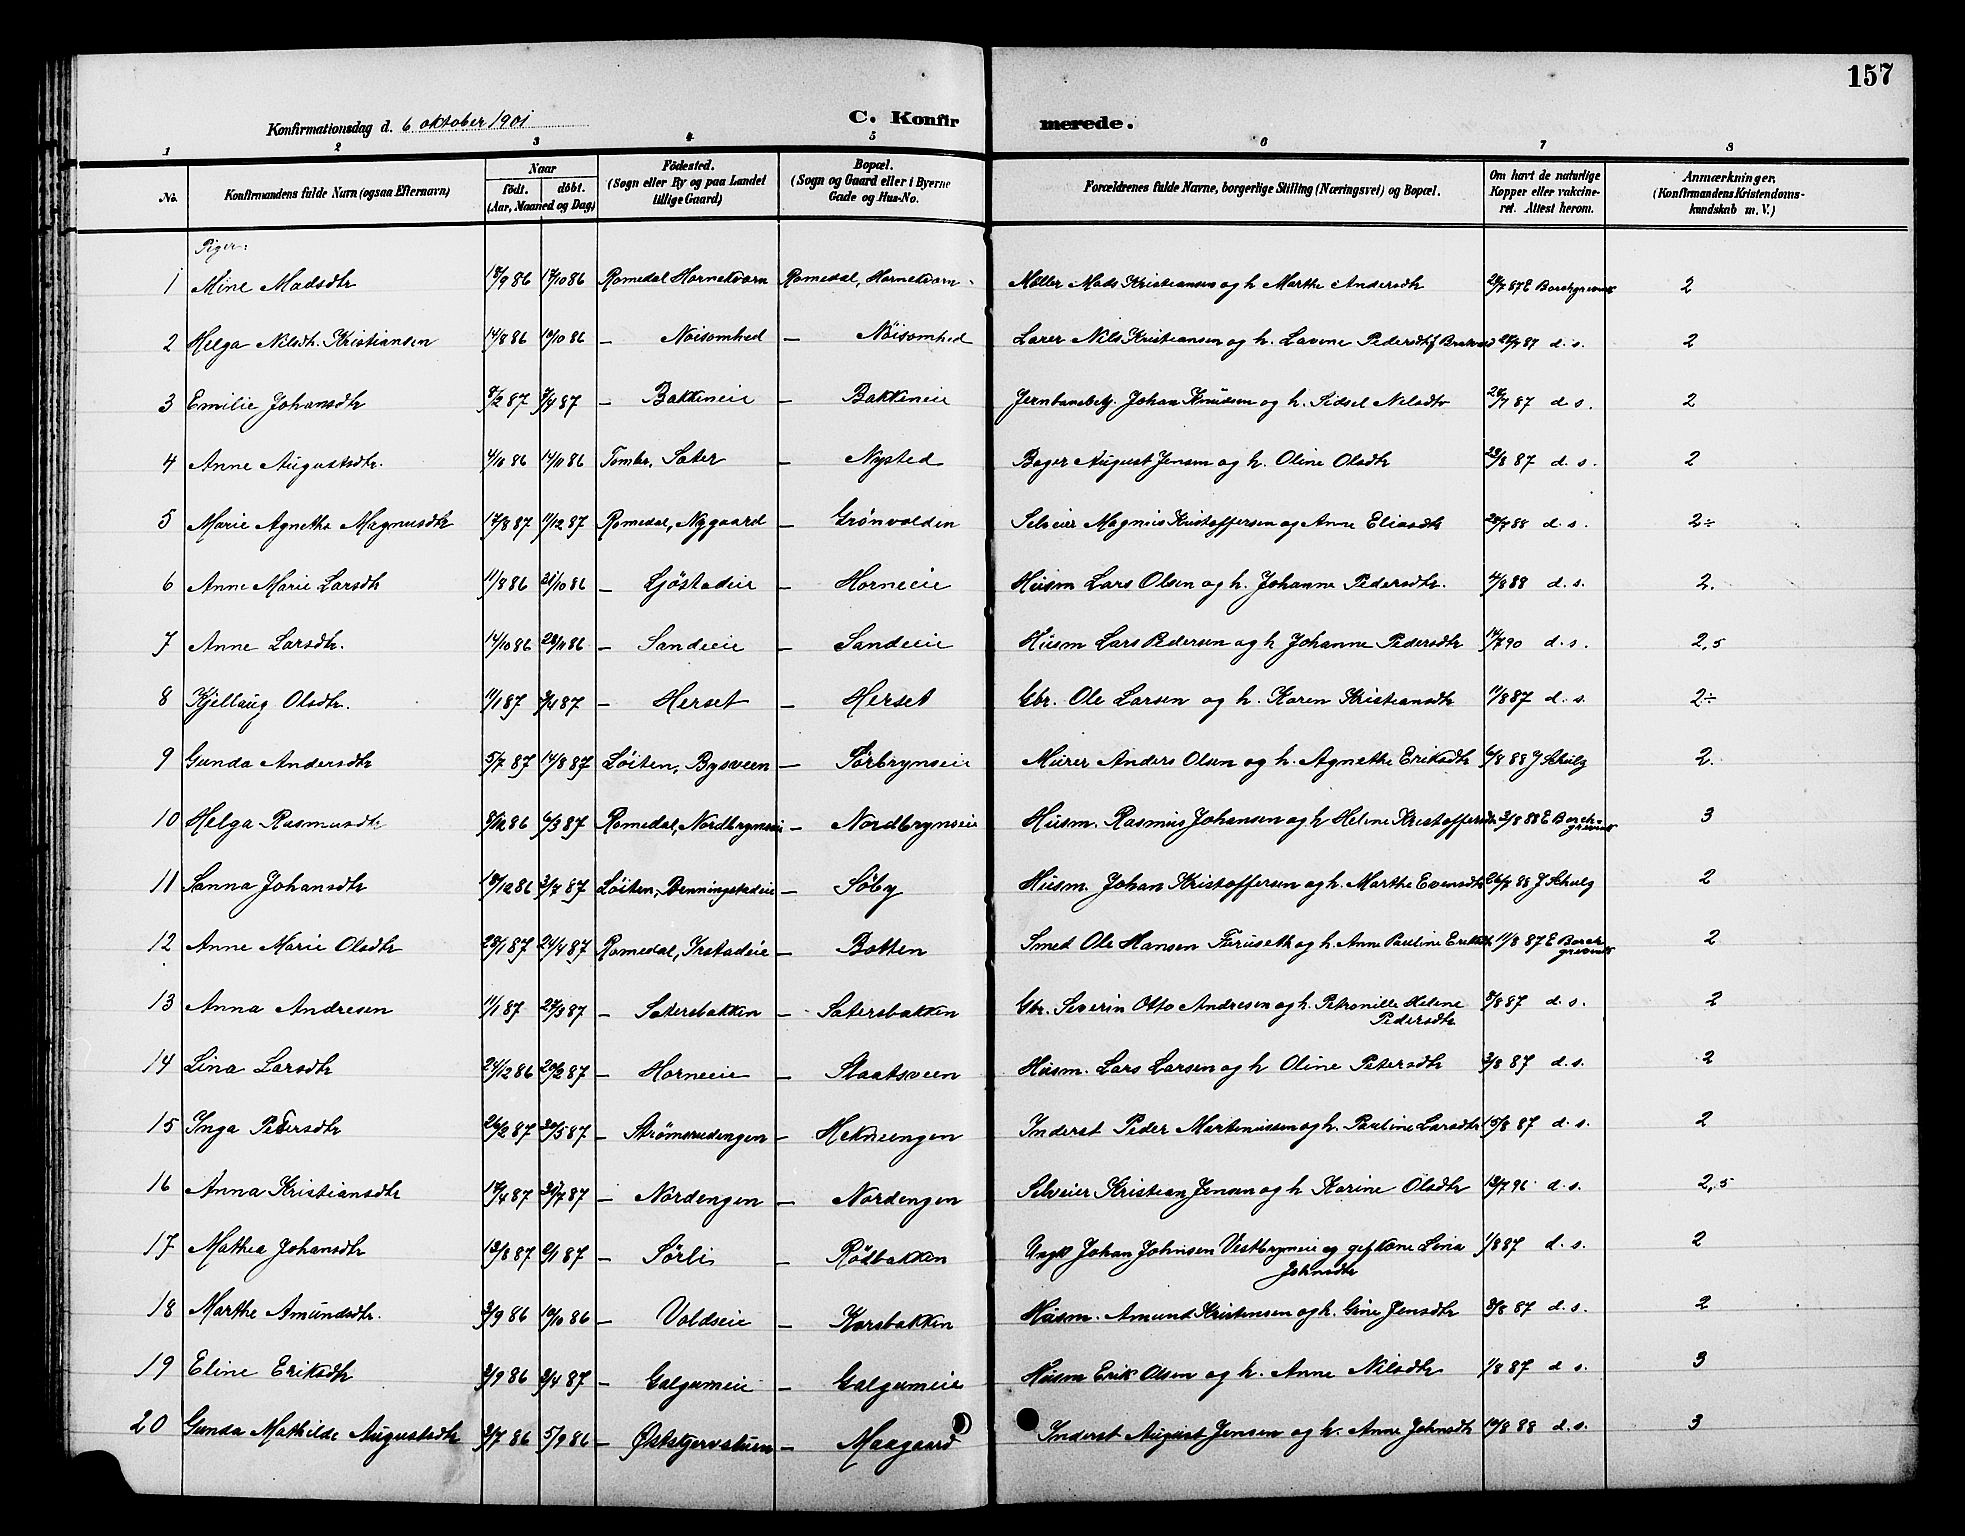 157
Konfirmationsdag d. 6 oktober 1901 C. Konfirmerede.
1 2 3 4 5 6 7 8
No. Konfirmandens fulde Navn (ogsaa Efternavn) Naar födt. döbt. (Aar, Maaned og Dag) Födested. (Sogn eller By og paa Landet tillige Gaard) Bopæl. (Sogn og Gaard eller i Byerne Gade og Hus-No. Forældrenes fulde Navne, borgerlige Stilling (Næringsvei) og Bopæl. Om havt de naturlige Kopper eller vakcineret. Attest herom. Anmærkninger, (Konfirmandens Kristendomskundskab m. V.)
Piger:
1 Mine Madsdtr 18/9 86 17/10 86 Romedal Hornekværn Romedal, Hornekværn Møller Mads Kristiansen og h Marthe Andersdtr 28/7 87 E Borchgrevink 2
2 Helga Nilsdtr. Kristiansen 14/8 86 10/10 86 — Nöisomhed — Nöisomhed Lærer Nils Kristiansen og h. Lavine Pedersdtr 28/7 87 d. s. 2
3 Emilie Johansdtr 8/2 87 9/4 87 — Bakkeneie — Bakkeneie Jernbanebetj. Johan Knudsen og h. Sidsel Nilsdtr 28/7 87 d. s. 2
4 Anne Augustsdtr. 4/10 86 14/11 86 Tomter, Sæter — Nysted Bager August Jensen og h. Oline Olsdtr 23/8 87 d. s. 2
5 Marie Agnethe Magnusdtr 17/8 87 11/12 87 Romedal, Nygaard — Grönvolden Selveier Magnus Kristoffersen og Anne Eliasdtr 28/7 88 d. s. 2÷
6 Anne Marie Larsdtr 11/8 86 31/10 86 — Ljöstadeie — Horneeie Husm Lars Olsen og h. Johanne Pedersdtr. 4/8 88 d. s. 2.
7 Anne Larsdtr. 14/10 86 28/11 86 — Sandeeie — Sandeeie Husm Lars Pedersen og h Johanne Pedersdtr 14/7 90 d. s. 2,5
8 Kjellaug Olsdtr. 11/1 87 3/4 87 — Herset — Herset Gbr. Ole Larsen og h. Karen Kristiansdtr 11/8 87 d. s. 2÷
9 Gunda Andersdtr 5/7 87 14/8 87 Löiten, Bysveen — Sörbrynseie Murer Anders Olsen og h. Agnethe Eriksdtr 6/8 88 J Schulz 2.
10 Helga Rasmusdtr 8/12 86 6/3 87 Romedal, Nordbrynseie — Nordbrynseie Husm. Rasmus Johansen og h Helene Kristoffersdtr 3/8 88 E Borchgrevink 3
11 Sanna Johansdtr 18/12 86 3/7 87 Löiten, Benningstadeie — Söby Husm. Johan Kristoffersen og h. Marthe Evensdtr 26/7 88 J Schulz 2
12 Anne Marie Olsdtr 28/1 87 24/4 87 Romedal, Irstadeie — Botten Smed Ole Hansen Furuseth og h. Anne Pauline Eriksdtr 11/8 87 E Borchgrevink 2
13 Anna Andresen 11/1 87 27/3 87 — Sætersbakken — Sætersbakken Gbr. Severin Otto Andresen og h. Petronille Helene Pedersdtr 8/8 87 d. s. 2
14 Lina Larsdtr 24/12 86 20/2 87 — Horneeie — Staatsveen Husm. Lars Larsen og h Oline Petersdtr 3/8 87 d. s. 2
15 Inga Pedersdtr 26/2 87 30/5 87 — Strömsrudengen — Hekneengen Inderst Peder Martinussen og h. Pauline Larsdtr 15/8 87 d. s. 2
16 Anna Kristiansdtr 17/4 87 31/7 87 — Nordengen — Nordengen Selveier Kristian Jensen og h Karine Olsdtr 13/7 96 d. s. 2,5
17 Mathea Johansdtr — Sörli — Rödbakken Ungk Johan Johnsen Vestbryneie og gift kone Lina Johnsdtr 1/8 87 d. s. 2
18 Marthe Amundsdtr. 3/9 86 10/10 86 — Voldseie — Korsbakken Husm. Amund Kristensen og h. Gine Jensdtr 8/8 87 d. s. 2
19 Eline Eriksdtr 2/9 86 3/4 87 — Galgumeie — Galgumeie Husm Erik Olsen og h. Anne Nilsdtr 1/8 87 d s. 3
20 Gunda Mathilde Augustsdtr 3/7 86 5/9 86 — Öststjernstuen — Maagaard Inderst August Jensen og h. Anne Johnsdtr 10/8 88 d. s. 3